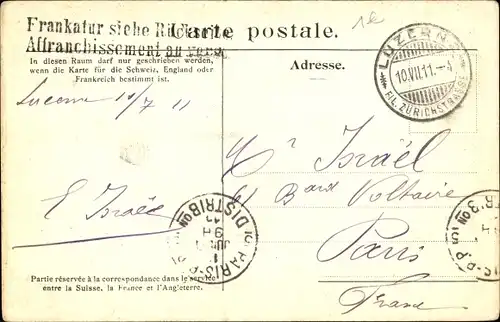 1c
Frankatur siehe Rückseite
Affranchissement au verso
Carte postale.
In diesen Raum darf nur geschrieben werden,
wenn die Karte für die Schweiz, England oder
Frankreich bestimmt ist.
Adresse.
LUZERN
10.VII.11.-4
FIL. ZÜRICHSTRASSE
Lucerne 10/7 11
Mr Israël
Bard Voltaire
Paris
France
E Israël
PARIS
DISTRIBON
Partie réservée à la correspondance dans le service
entre la Suisse, la France et l'Angleterre.